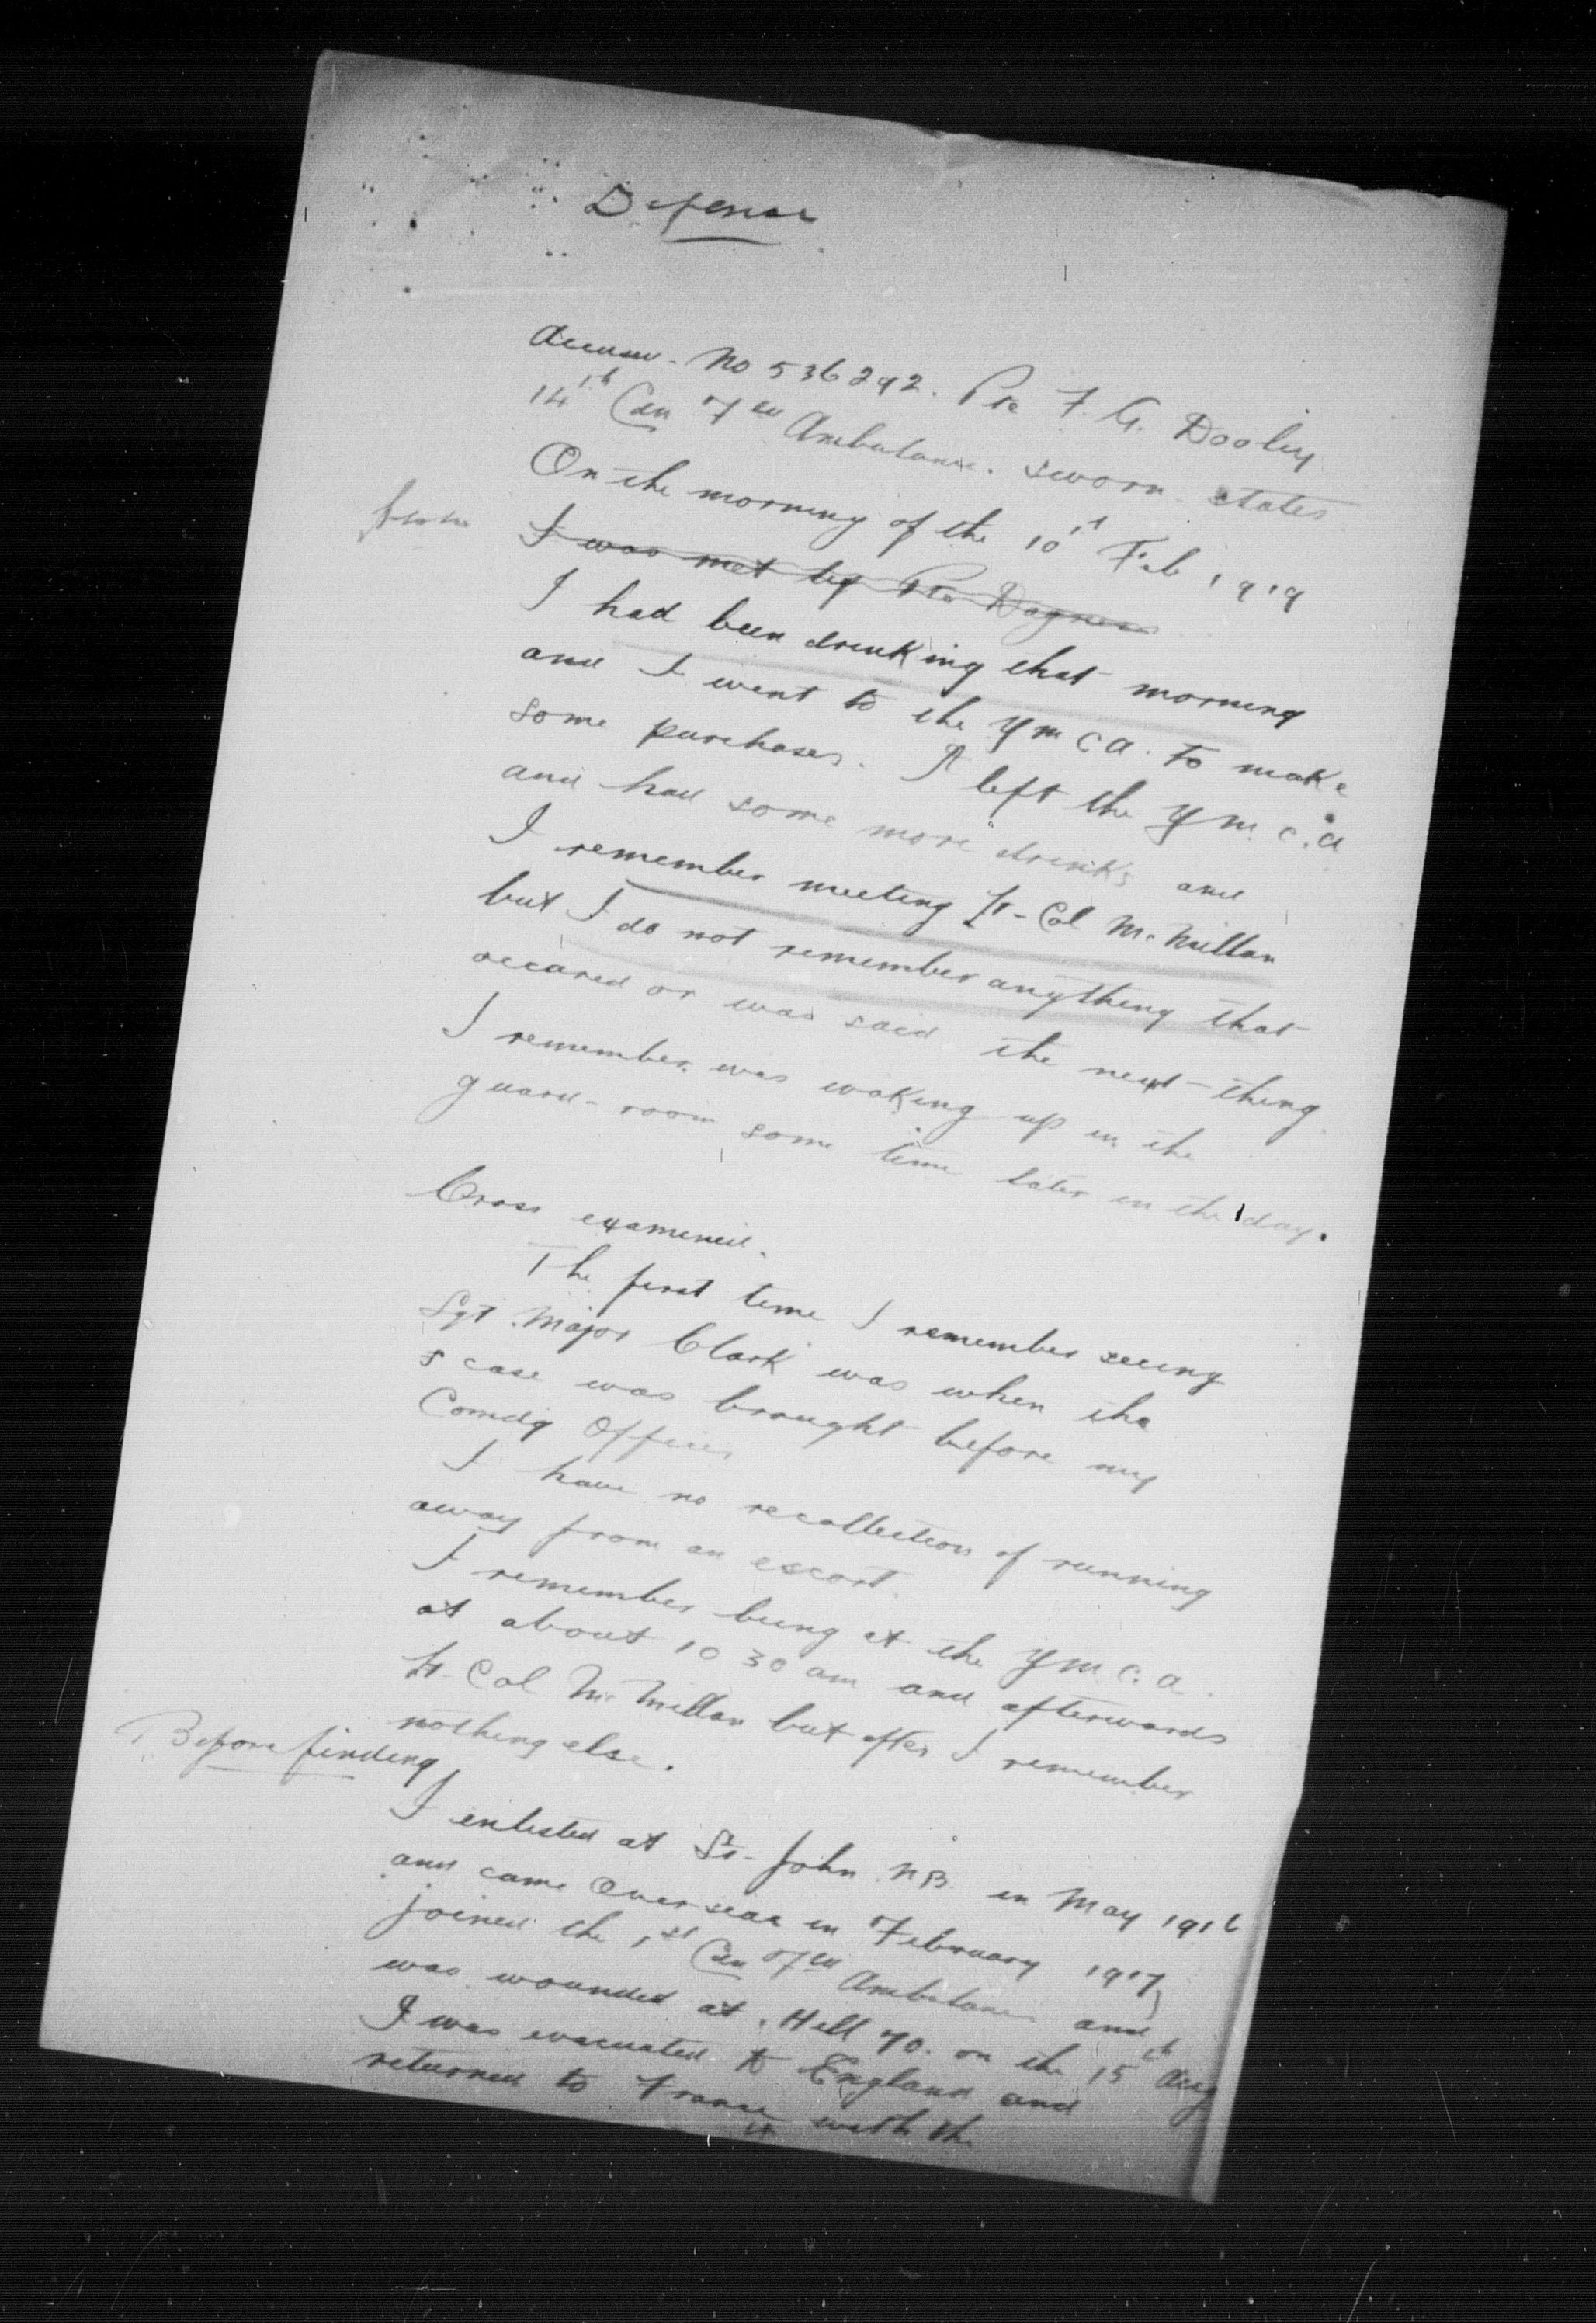 Defense
Accused - No 536292. Pte F. G. Dooley
14th Can Fd Ambulance. sworn states
On the morning of the 10th Feb 1919
I was met by Pte
I had been drinking that morning
and I went to the Y M C A. to make
some purchases. I left the Y M. C. A
and had some more drinks and
I remember meeting Lt-Col McMillan
but I do not remember anything that
occured or was said the next thing
I remember was waking up in the
guard-room some time later in the day.
Cross examined.
The first time I remember seeing
Sgt Major Clark was when the
case was brought before my
Comdg Officer
I have no recollection of running
away from an escort.
I remember being at the Y M. C. A.
at about 10 30 am and afterwards
Lt. Col McMillan but after I remember
nothing else.
Before finding
I enlisted at St- John N B. in May 1916
and came Overseas in February 1917
joined the 1st Can Fd Ambulance and
was wounded at Hill 70. on the 15th Aug
I was evacuated to England and
returned to France with the